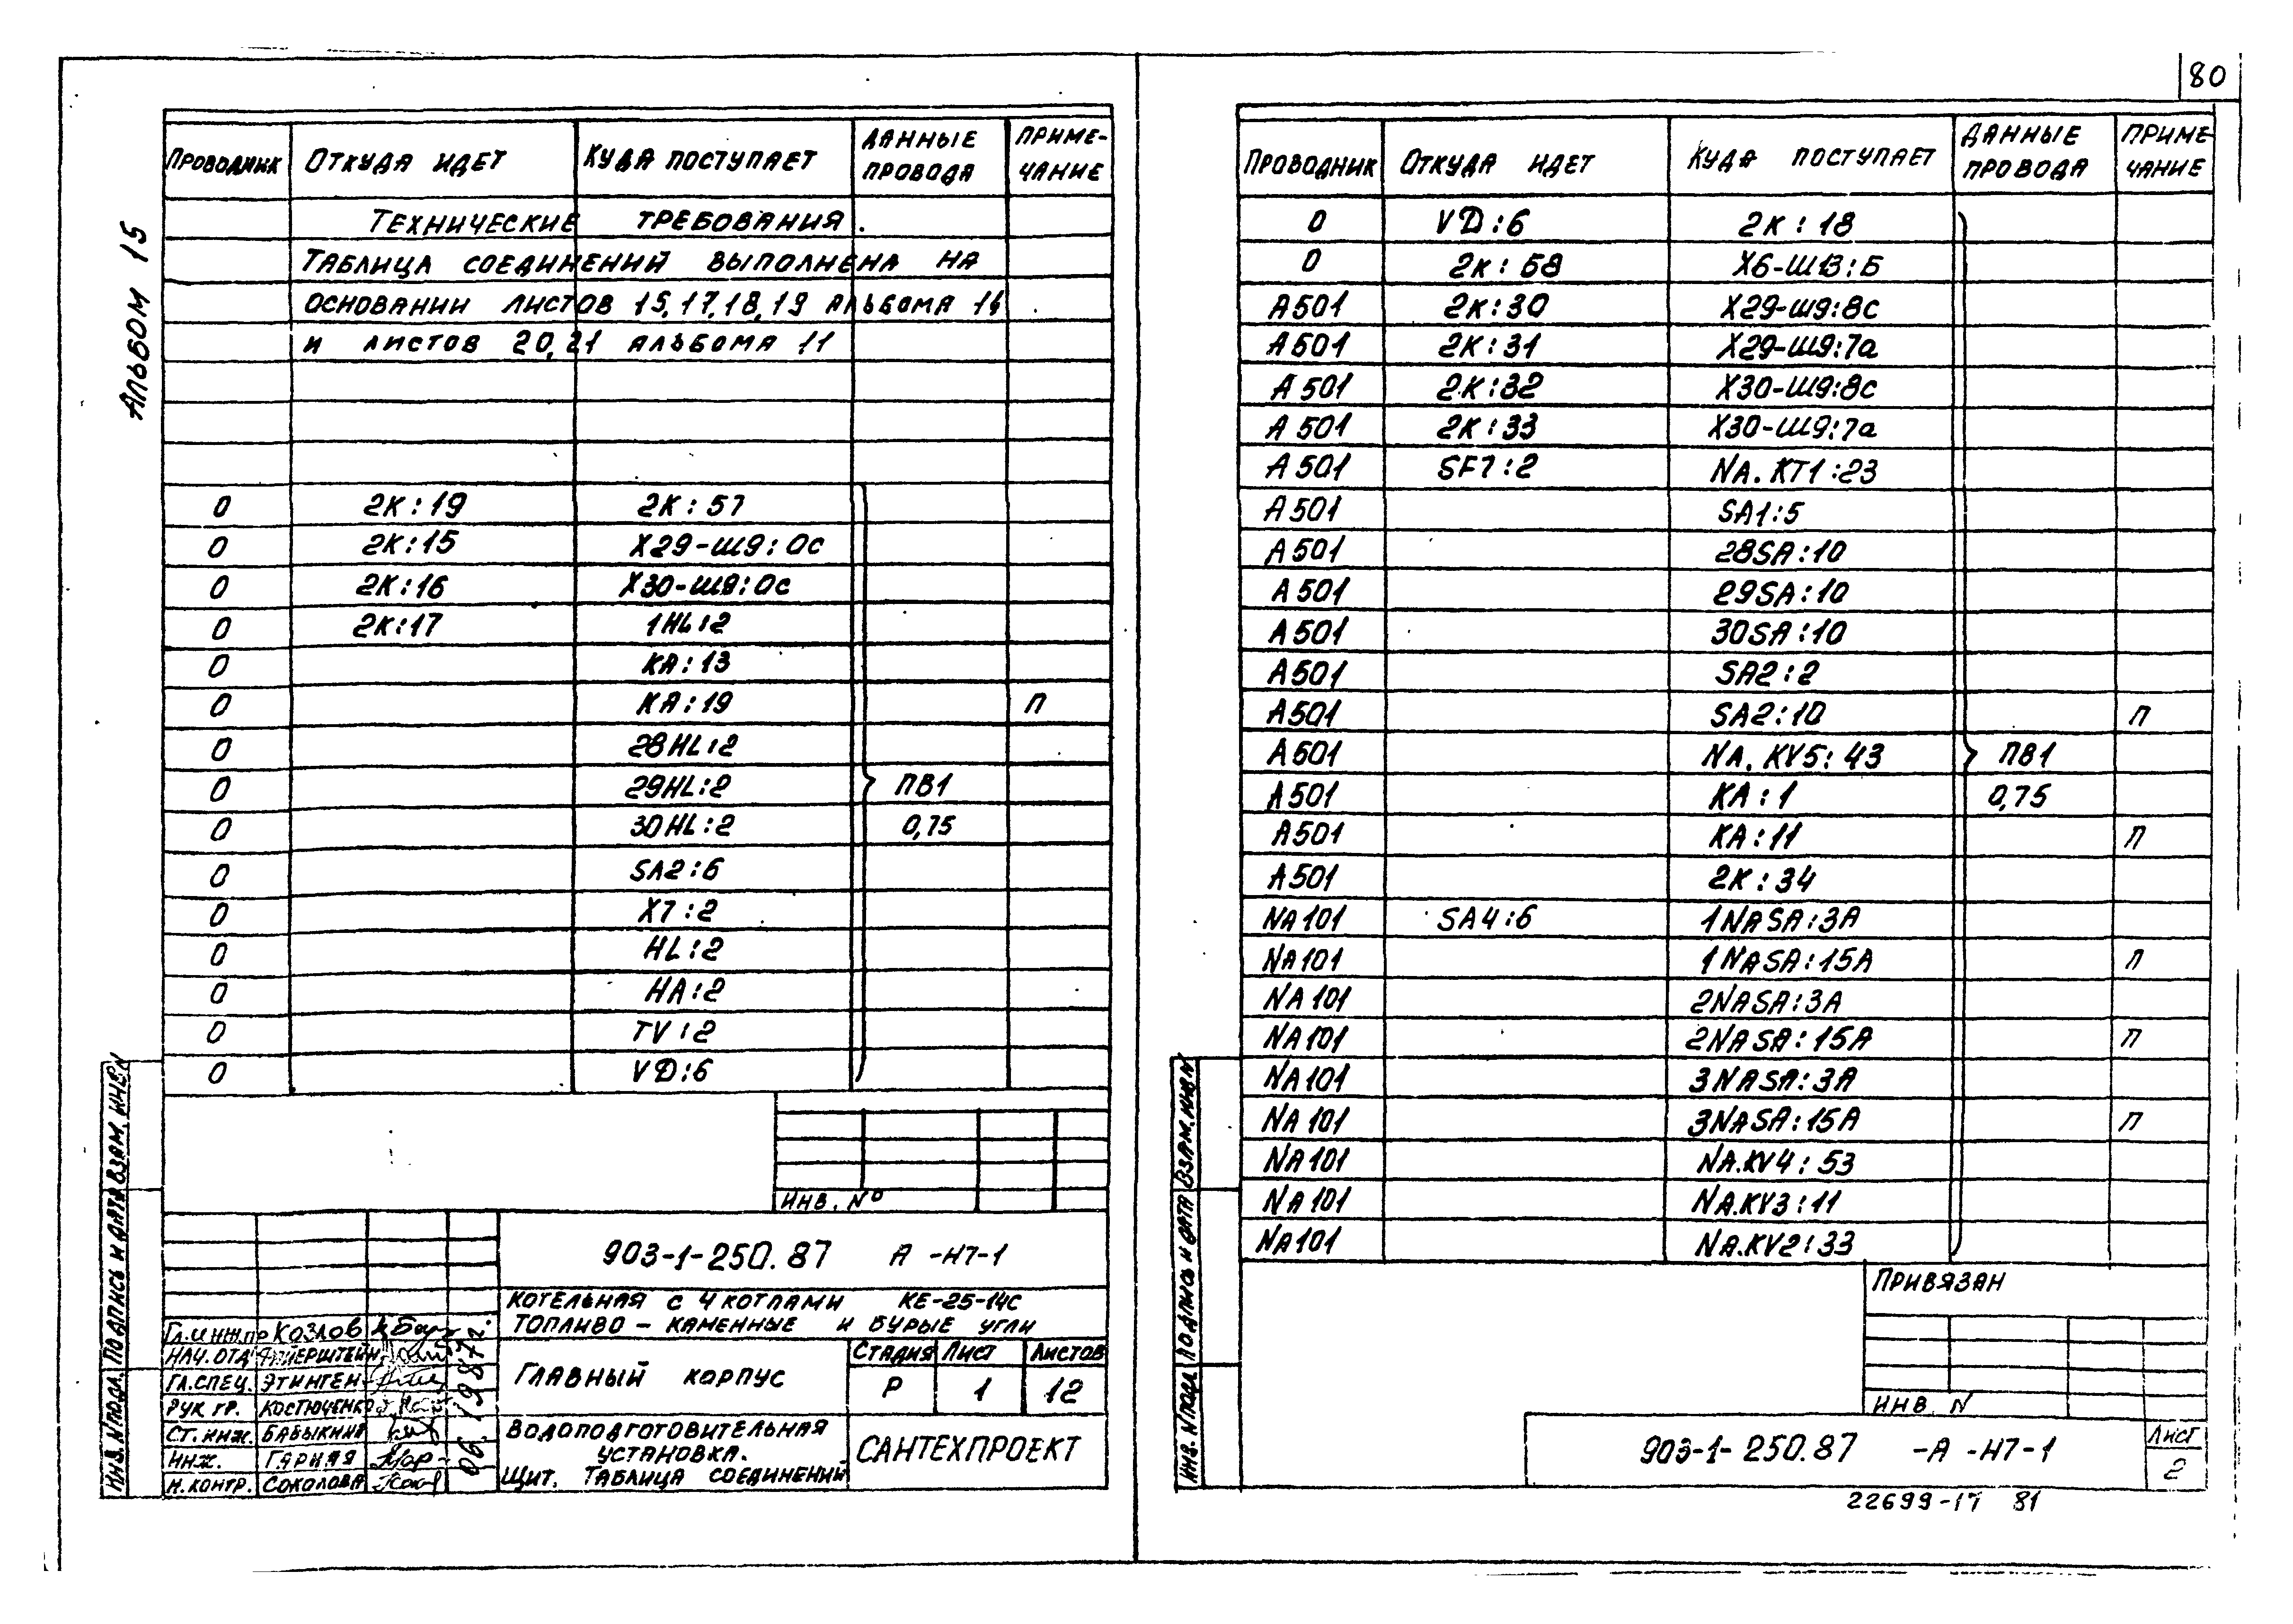 80
АЛЬБОМ 15
ПРОВОДНИК ОТКУДА ИДЕТ КУДА ПОСТУПАЕТ ДАННЫЕ ПРОВОДА ПРИМЕ-ЧАНИЕ
ТЕХНИЧЕСКИЕ ТРЕБОВАНИЯ.
ТАБЛИЦА СОЕДИНЕНИЙ ВЫПОЛНЕНА НА
ОСНОВАНИИ ЛИСТОВ 15,17,18,19 АЛЬБОМА 14
И ЛИСТОВ 20,21 АЛЬБОМА 11
0 2К:19 2К:57
0 2К:15 Х29-Ш9:0с
0 2К:16 Х30-Ш9:0с
0 2К:17 1HL:2
0 КА:13
0 КА:19 П
0 28HL:2
0 29HL:2 ПВ1
0 30HL:2 0,75
0 SA2:6
0 Х7:2
0 HL:2
0 HA:2
0 TV:2
0 VD:6
ИНВ. №
903-1-250.87 А -Н7-1
КОТЕЛЬНАЯ С 4 КОТЛАМИ КЕ-25-14С
ТОПЛИВО - КАМЕННЫЕ И БУРЫЕ УГЛИ
ГЛ.ИНЖ.ПР КОЗЛОВ
НАЧ.ОТД
ГЛ.СПЕЦ. ЭТИНГЕН
РУК ГР. КОСТЮЧЕНКО
СТ.ИНЖ. БАБЫКИНА
ИНЖ. ГАРНАЯ
Н.КОНТР. СОКОЛОВА
06.1987г.
ГЛАВНЫЙ КОРПУС
СТАДИЯ ЛИСТ ЛИСТОВ
Р 1 12
ВОДОПОДГОТОВИТЕЛЬНАЯ
УСТАНОВКА.
ЩИТ. ТАБЛИЦА СОЕДИНЕНИЙ
САНТЕХПРОЕКТ
ИНВ.N ПОДЛ. ПОДПИСЬ И ДАТА ВЗАМ. ИНВ.N
ПРОВОДНИК ОТКУДА ИДЕТ КУДА ПОСТУПАЕТ ДАННЫЕ ПРОВОДА ПРИМЕ ЧАНИЕ
0 VD:6 2К:18
0 2К:58 Х6-Ш13:Б
А501 2К:30 Х29-Ш9:8с
А501 2К:31 Х29-Ш9:7а
А501 2К:32 Х30-Ш9:8с
А501 2К:33 Х30-Ш9:7а
А501 SF7:2 NA.KT1:23
А501 SA1:5
А501 28SA:10
А501 29SA:10
А501 30SA:10
А501 SA2:2
А501 SA2:10 П
А501 NA.KV5:43 ПВ1
А501 КА:1 0,75
А501 КА:11 П
А501 2К:34
NA101 SA4:6 1NASA:3A
NA101 1NASA:15A П
NA101 2NASA:3A
NA101 2NASA:15A П
NA101 3NASA:3A
NA101 3NASA:15A П
NA101 NA.KV4:53
NA101 NA.KV3:11
NA101 NA.KV2:33
ПРИВЯЗАН
ИНВ. N
903-1-250.87 -А -Н7-1
ЛИСТ
2
ИНВ. N ПОДЛ. ПОДПИСЬ И ДАТА ВЗАМ. ИНВ.N
22699-17 81